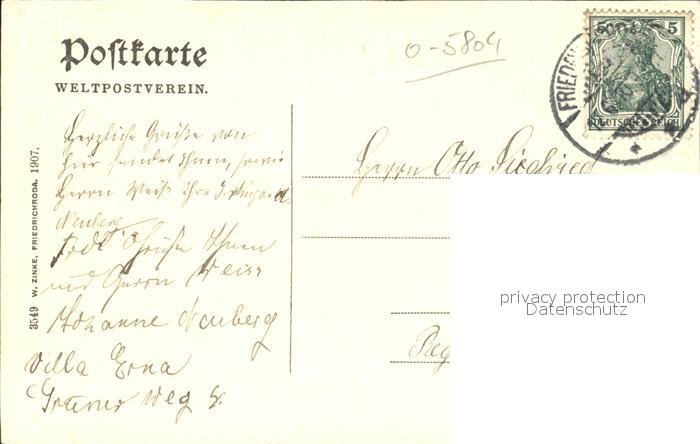 Postkarte
WELTPOSTVEREIN.
0-5804
5
DEUTSCHES REICH
Herzliche Grüße von
hier sendet Ihnen, sowie
Herrn Weiß Ihre
Neuberg
Grüße Ihnen
und Herrn Weiss
Johanne Neuberg
Villa Erna
Grüner Weg 5.
Herrn Otto Siegfried
Reg
3549 W. ZINKE, FRIEDRICHRODA. 1907.
privacy protection
Datenschutz